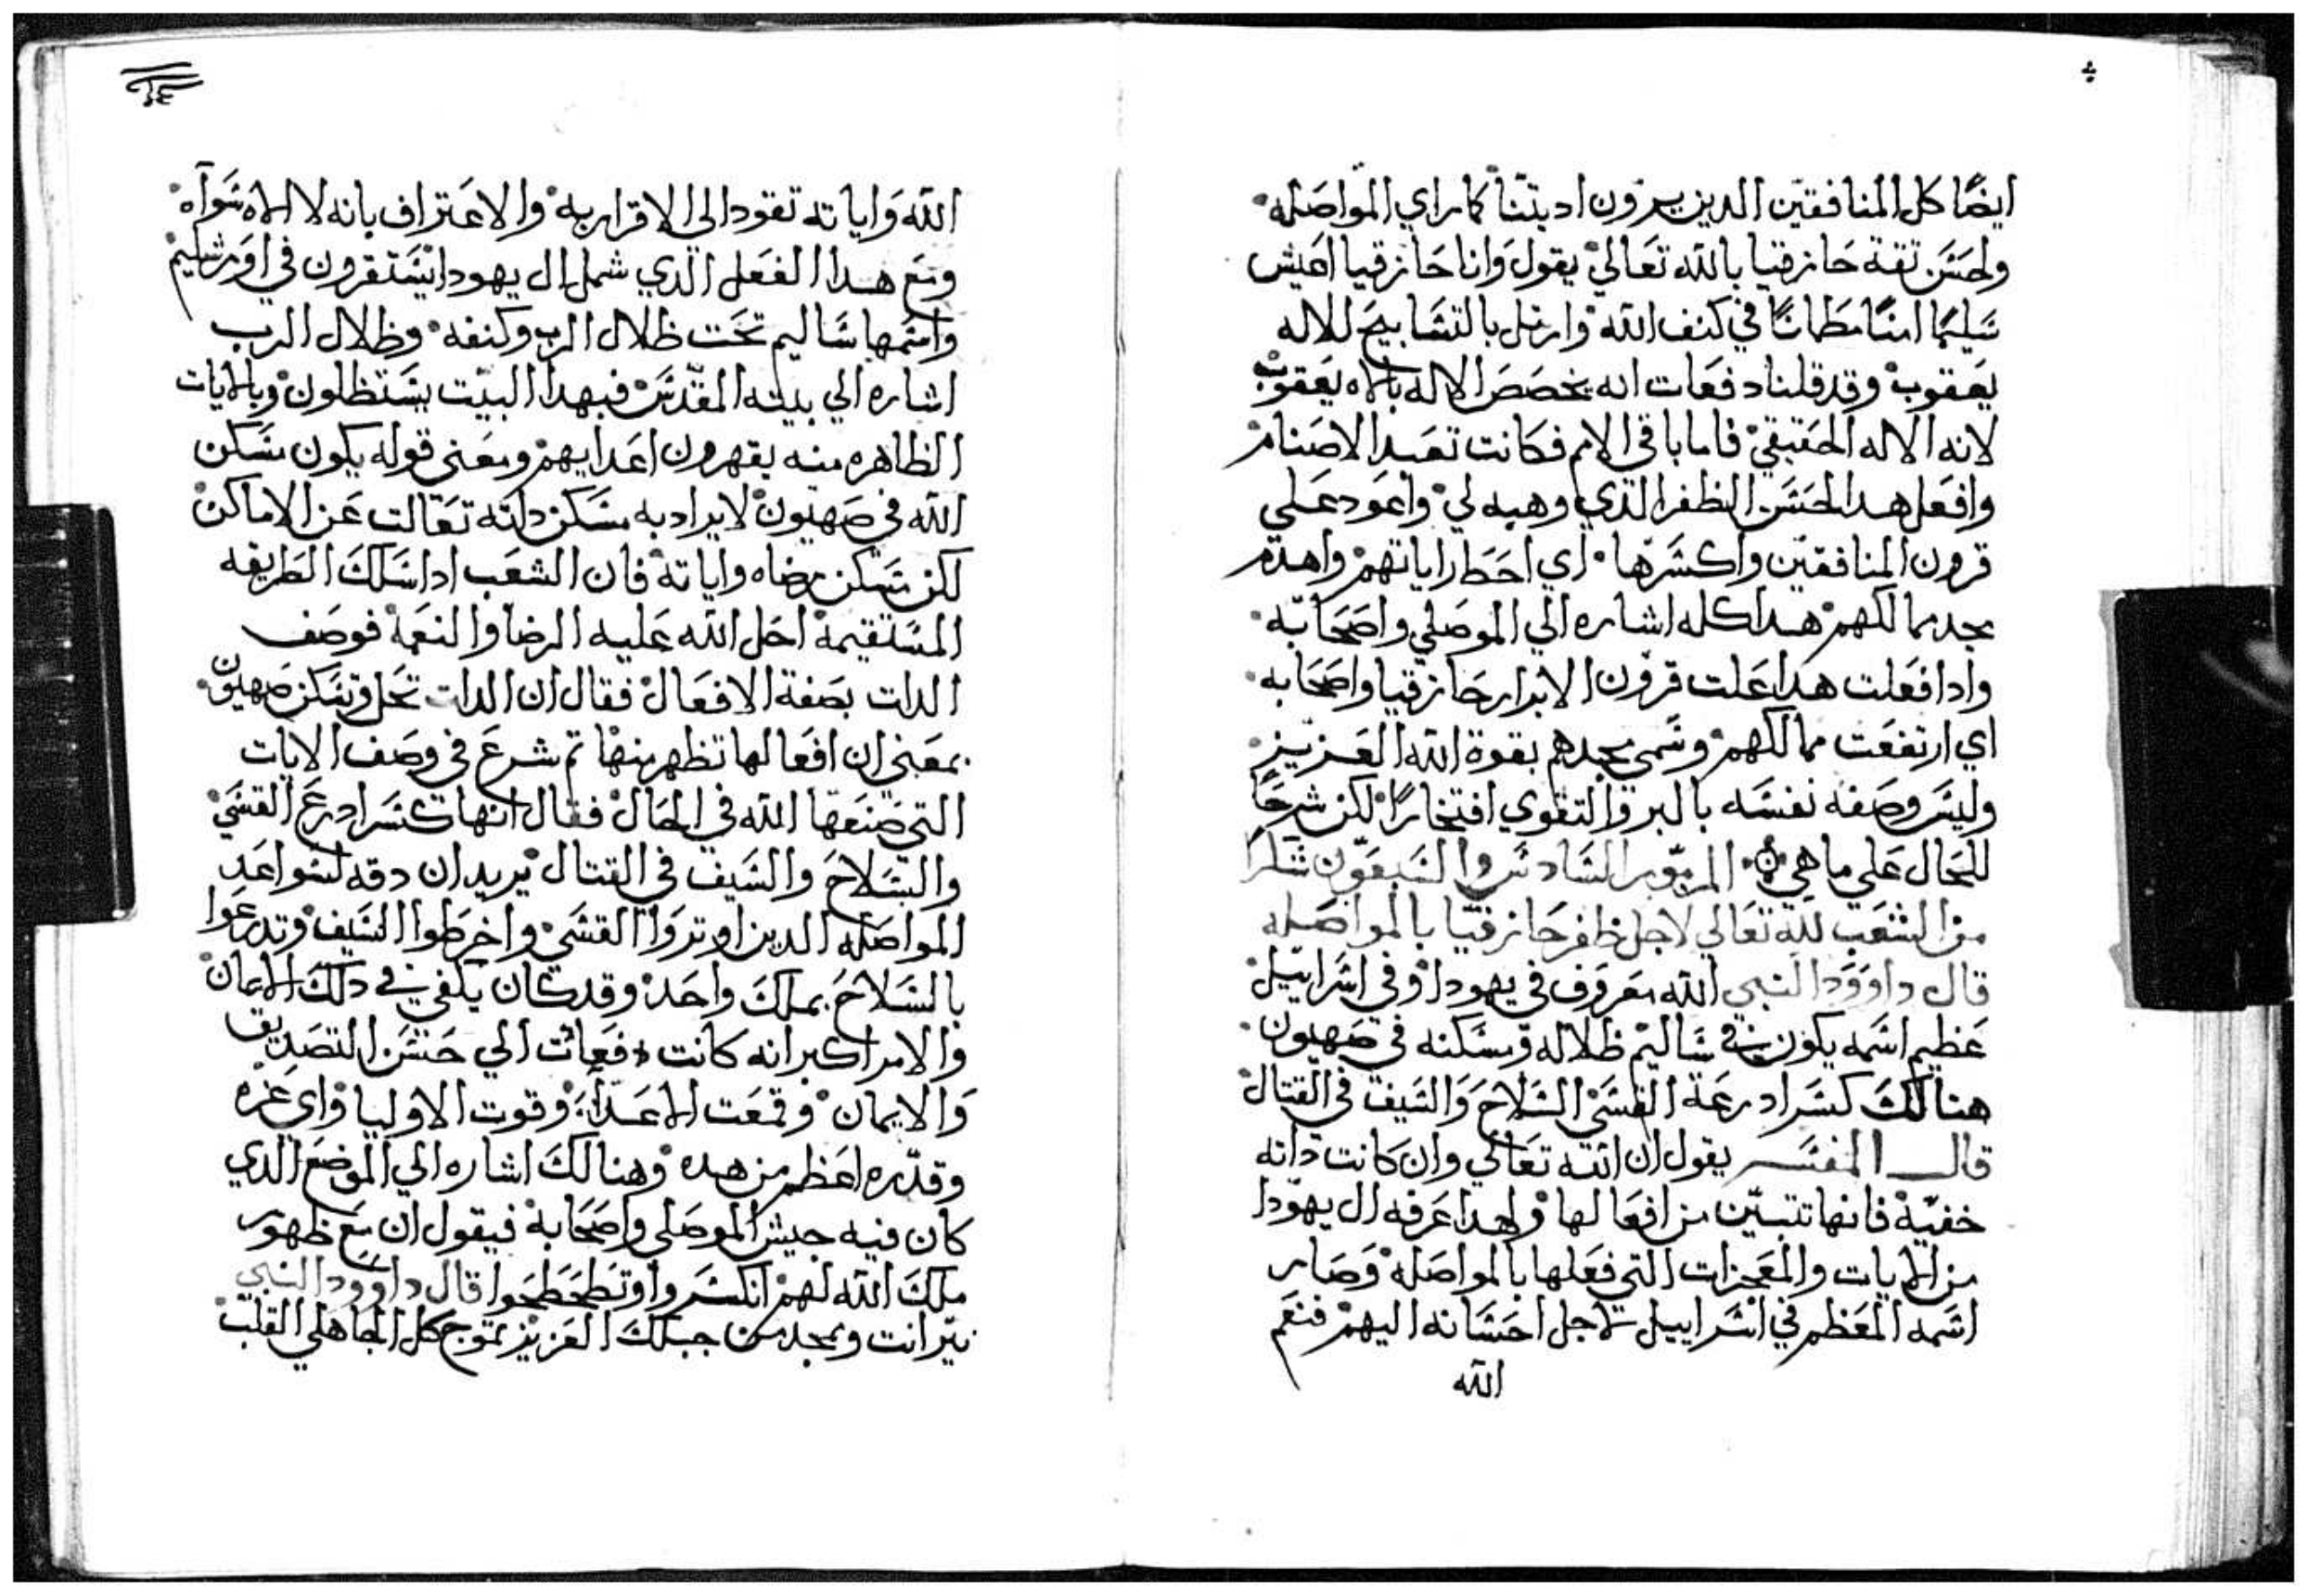 ايضًا كل المنافقين الدين يرون اديتنا كما راي المواصله
ولحسن تقة حازقيا بالله تعالي يقول وانا حازقيا اعيش
سليمًا امنًا مطمانًا في كنف الله وارتل بالتسابيح للاله
يعقوب وقد قلنا دفعات انه يخصص الاله بالاه يعقوب
لانه الاله الحقيقي فاما باقي الامم فكانت تعبد الاصنام
وافعل هدا لحسن الظفر الدي وهبه لي واعود علي
قرون المنافقين واكسرها اي احط راياتهم واهدم
مجد ممالكهم هدا كله اشاره الي الموصلي واصحابه
وادا فعلت هدا علت قرون الابرار حازقيا واصحابه
اي ارتفعت ممالكهم وسمي مجدهم بقوة الله العزيز
وليس وصفه نفسه بالبر والتقوي افتخارًا لكن شرحًا
للحال علي ما هي المزمور السادس والسبعون شكرًا
من الشعب لله تعالي لاجل ظفر حازقيا بالمواصله
قال داوود النبي الله معروف في يهودا وفي اسراييل
عظيم اسمه يكون في ساليم ظلاله ومسكنه في صهيون
هنالك كسر ادرعة القسي السلاح والسيف في القتال
قال المفسر يقول ان الله تعالي وان كانت داته
خفية فانها تتبين من افعالها ولهدا عرفه ال يهودا
من الايات والمعجزات التي فعلها بالمواصله وصار
اسمه المعظم في اسراييل لاجل احسانه اليهم فنعم
الله
الله واياته تقود الي الاقرار به والاعتراف بانه لا الاه سواه
ومع هدا الفعل الدي شمل ال يهودا يستقرون في اورشليم
واسمها ساليم تحت ظلال الرب وكنفه وظلال الرب
اشاره الي بيته المقدس فبهدا البيت يستظلون وبالايات
الظاهره منه يقهرون اعدايهم ومعني قوله يكون مسكن
الله في صهيون لا يراد به مسكن داته تعالت عن الاماكن
لكن مسكن رضاه واياته فان الشعب ادا سلك الطريقه
المستقيمة احل الله عليه الرضا والنعمة فوصف
الدات بصفة الافعال فقال ان الدات تحل وتسكن صهيون
بمعني ان افعالها تظهر منها تم شرع في وصف الايات
التي صنعها الله في الحال فقال انها تكسر ادرع القسي
والسلاح والسيف في القتال يريد ان دقه لسواعد
المواصله الدين اوتروا القسي واخرطوا السيف وتدرعوا
بالسلاح بملك واحد وقد كان يكفي في دلك الايمان
والامر اكبر انه كانت دفعات الي حسن التصديق
والايمان وقمعت الاعدا وقوت الاوليا واي عزه
وقدره اعظم من هده وهنالك اشاره الي الموضع الدي
كان فيه جيش الموصلي واصحابة فيقول ان مع ظهور
ملك الله لهم انكسروا وتطحطحوا قال داوود النبي
نير انت وممجد من جبلك العزيز تموج كل الجاهلي القلب